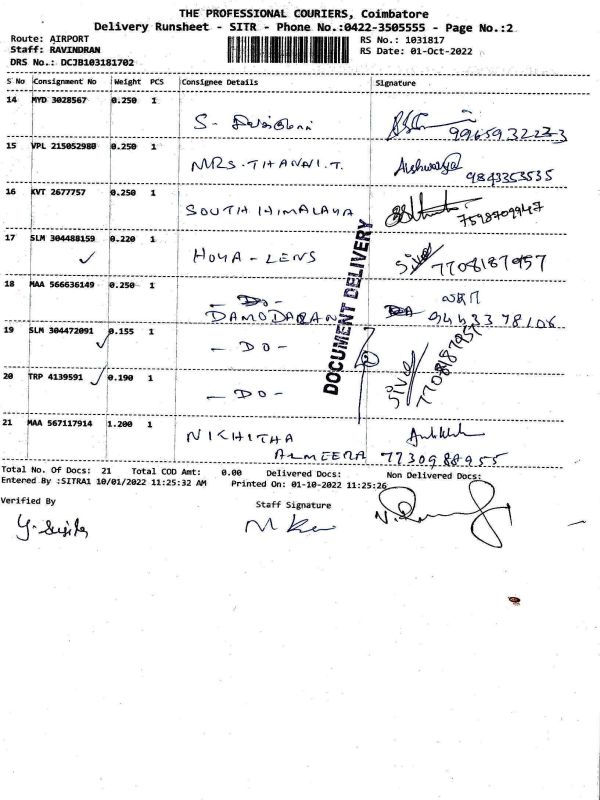 THE PROFESSIONAL COURIERS, Coimbatore
Delivery Runsheet - SITR - Phone No.:0422-3505555 - Page No.:2
Route: AIRPORT
RS No.: 1031817
Staff: RAVINDRAN
RS Date: 01-Oct-2022
DRS No.: DCJB103181702
S No Consignment No Weight PCS Consignee Details Signature
14 MYD 3028567 0.250 1
S-
9965932223
15 VPL 215052980 0.250 1
MRS. THANVI.T. Aishwarya
9843353535
16 KVT 2677757 0.250 1
SOUTH HIMALAYA
7598709947
17 SLM 304488159 0.220 1
HOYA - LENS Siva 7708187957
18 MAA 566636149 0.250 1
- DO -
DAMODARAN 9443378106
19 SLM 304472091 0.155 1
- DO -
20 TRP 4139591 0.190 1
- DO - Siva 7708187957
DOCUMENT DELIVERY
21 MAA 567117914 1.200 1
NIKHITHA
ALMEERA 7730988955
Total No. Of Docs: 21 Total COD Amt: 0.00 Delivered Docs: Non Delivered Docs:
Entered By :SITRA1 10/01/2022 11:25:32 AM Printed On: 01-10-2022 11:25:26
Verified By
Staff Signature